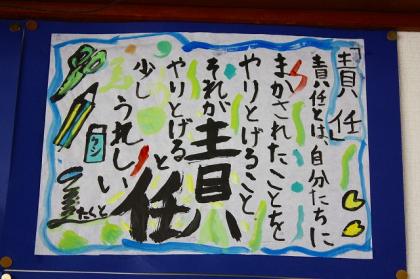 「責任」
責任とは、自分たちに
まかされたことを
やりとげること
それが
責任
やりとげると
少しうれしい
ケシ
たくと